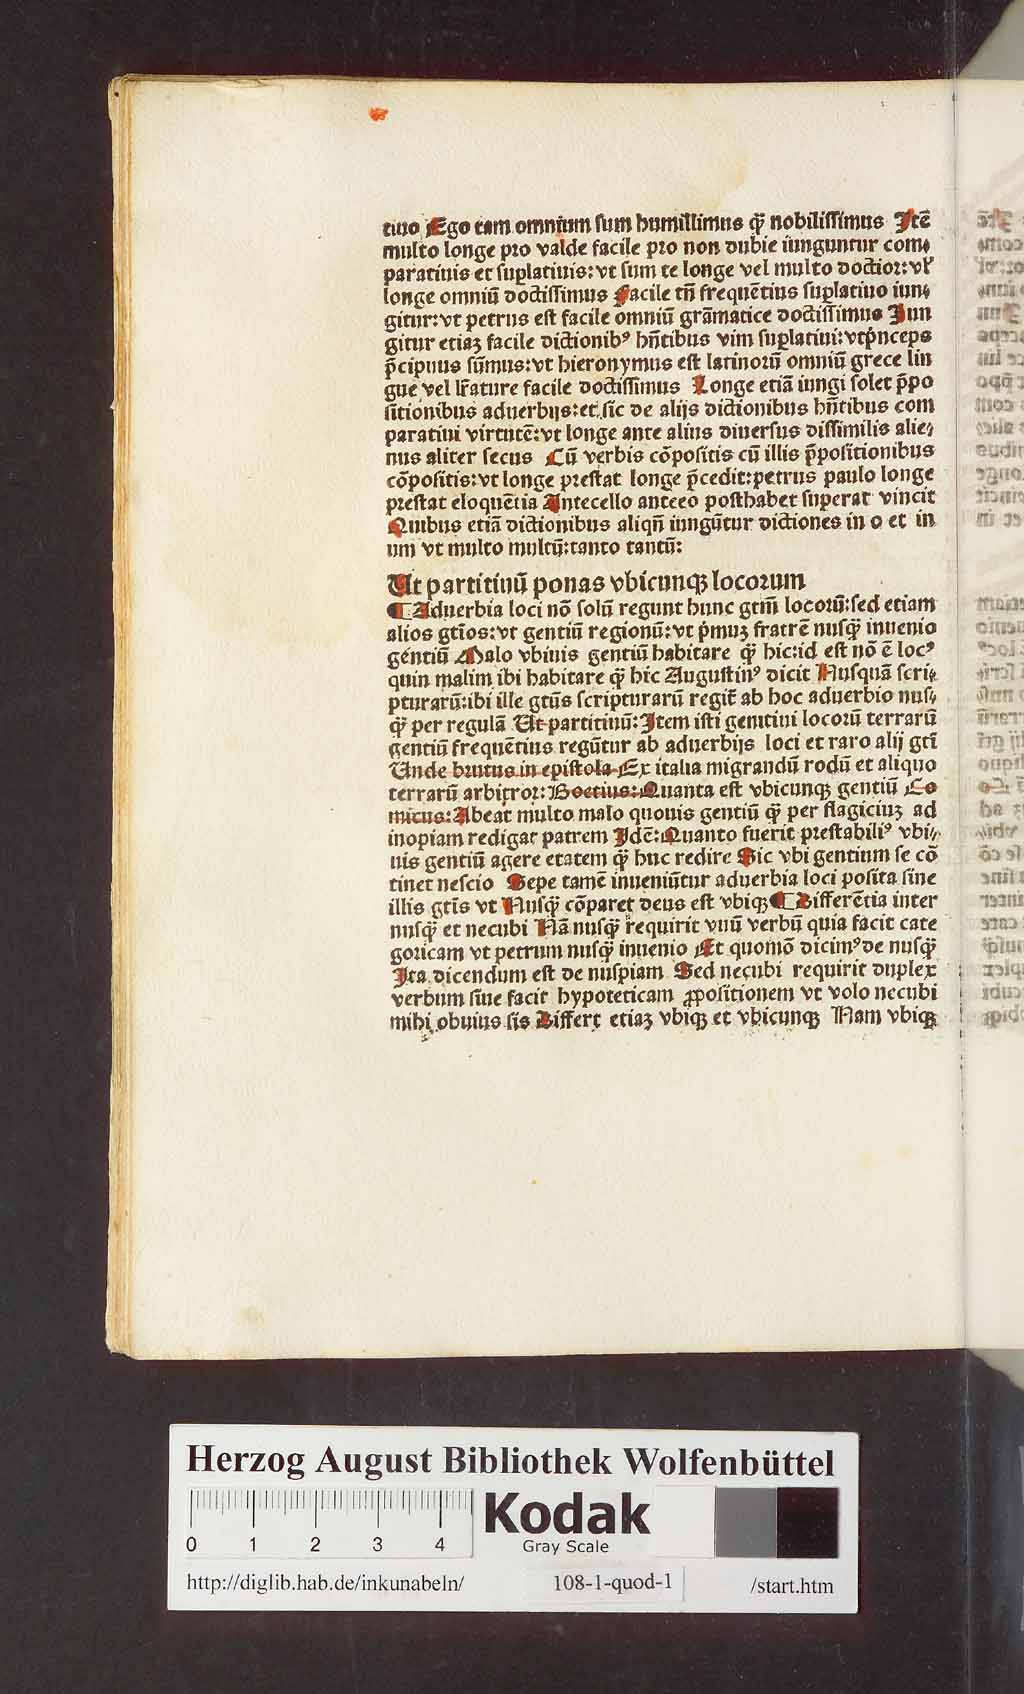 tiuo Ego tam omnium sum humillimus qꝫ̃ nobilissimus Itē
multo longe pro valde facile pro non dubie iunguntur com⸗
paratiuis et suꝑlatiuis: vt sum te longe vel multo doctior: vł
longe omniū doctissimus Facile tñ frequētius suꝑlatiuo iun⸗
gitur: vt petrus est facile omniū grāmatice doctissimus Iun
gitur etiaꝫ facile dictionibꝰ hñtibus vim suꝑlatiui: vt p̃nceps
p̃cipuus sūmus: vt hieronymus est latinorū omniū grece lin
gue vel lr̃ature facile doctissimus Longe etiā iungi solet p̃po
sitionibus aduerbijs: et sic de alijs dictionibus hñtibus com
paratiui virtutē: vt longe ante alius diuersus dissimilis alie⸗
nus aliter secus Cū verbis cōpositis cū illis p̃positionibus
cōpositis: vt longe prestat longe p̃cedit: petrus paulo longe
prestat eloquētia Antecello anteeo posthabet superat vincit
Quibus etiā dictionibus aliqñ iungūtur dictiones in o et in
um vt multo multū: tanto tantū:
Ut partitiuū ponas vbicunqꝫ locorum
¶ Aduerbia loci nō solū regunt hunc gtm̃ locorū: sed etiam
alios gtĩos: vt gentiū regionū: vt p̃muꝫ fratrē nusqꝫ̃ inuenio
gentiū Malo vbiuis gentiū habitare qꝫ̃ hic: id est nō ē locꝰ
quin malim ibi habitare qꝫ̃ hic Augustinꝰ dicit Nusquā scri⸗
pturarū: ibi ille gtũs scripturarū regit̃ ab hoc aduerbio nus⸗
qꝫ̃ per regulā Ut partitiuū: Item isti genitiui locorū terrarū
gentiū frequētius regūtur ab aduerbijs loci et raro alij gtĩ
Unde brutus in epistola Ex italia migrandū rodū et aliquo
terrarū arbitror: Boetius: Quanta est vbicunqꝫ gentiū Co
micus: Abeat multo malo quouis gentiū qꝫ̃ per flagiciuꝫ ad
inopiam redigat patrem Idē: Quanto fuerit prestabiliꝰ vbi⸗
uis gentiū agere etatem qꝫ̃ huc redire Sic vbi gentium se cō
tinet nescio Sepe tamē inueniūtur aduerbia loci posita sine
illis gtĩs vt Nusqꝫ̃ cōparet deus est vbiqꝫ ¶ Differētia inter
nusqꝫ̃ et necubi Nā nusqꝫ̃ requirit vnū verbū quia facit cate
goricam vt petrum nusqꝫ̃ inuenio Et quomō dicimꝰ de nusqꝫ̃
Ita dicendum est de nuspiam Sed necubi requirit duplex
verbum siue facit hypoteticam ꝓpositionem vt volo necubi
mihi obuius sis Differt etiaꝫ vbiqꝫ et vbicunqꝫ Nam vbiqꝫ
Herzog August Bibliothek Wolfenbüttel
0 1 2 3 4
Kodak
Gray Scale
http://diglib.hab.de/inkunabeln/ 108-1-quod-1 /start.htm